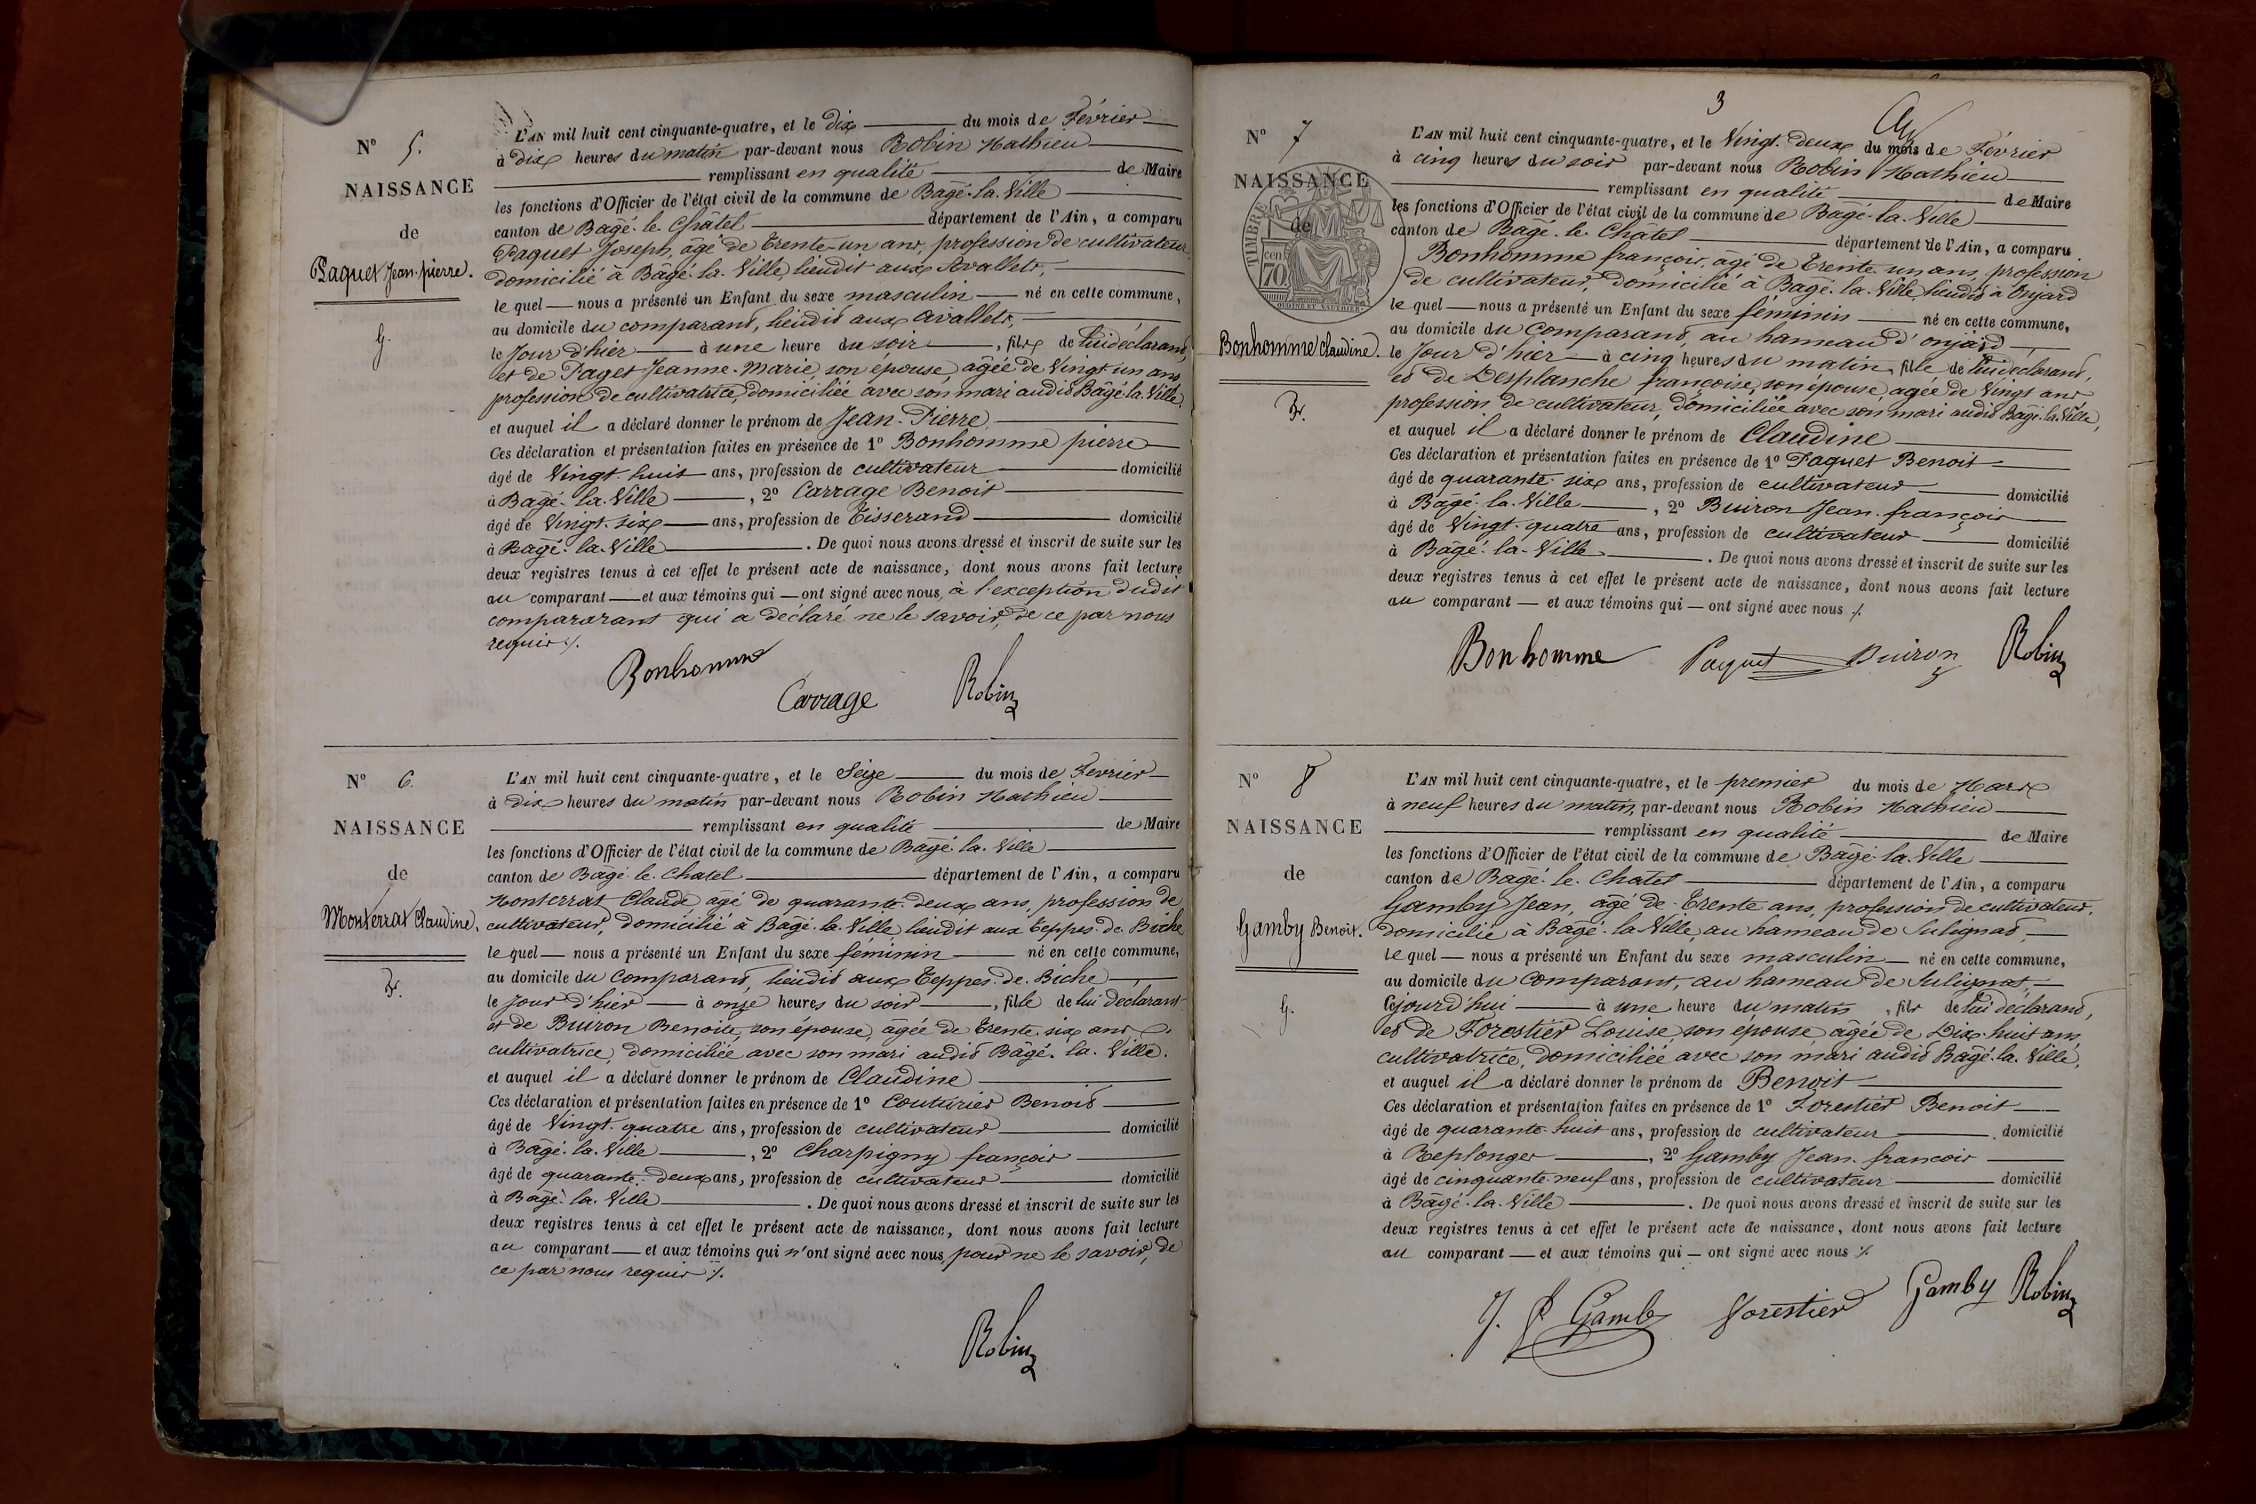 N° 5.
NAISSANCE
de
Paquet Jean-pierre.
G.
L'AN mil huit cent cinquante-quatre, et le dix du mois de Février
à dix heures du matin par-devant nous Robin Mathieu
remplissant en qualité de Maire
les fonctions d'Officier de l'état civil de la commune de Bâgé-la-Ville
canton de Bâgé-le-Châtel département de l'Ain, a comparu
Paquet Joseph, âgé de Trente-un ans, profession de cultivateur,
domicilié à Bâgé-la-Ville, lieudit aux Avallets,
le quel nous a présenté un Enfant du sexe masculin né en cette commune,
au domicile du comparant, lieudit aux avallets,
le Jour d'hier à une heure du soir, fils de lui déclarant,
et de Paget Jeanne-Marie, son épouse, âgée de Vingt un ans,
profession de cultivatrice, domiciliée avec son mari audit Bâgé-la-Ville,
et auquel il a déclaré donner le prénom de Jean-Pierre
Ces déclaration et présentation faites en présence de 1° Bonhomme pierre
âgé de Vingt-huit ans, profession de cultivateur domicilié
à Bâgé-la-Ville, 2° Carrage Benoit
âgé de Vingt-six ans, profession de Tisserand domicilié
à Bagé-la-Ville. De quoi nous avons dressé et inscrit de suite sur les
deux registres tenus à cet effet le présent acte de naissance, dont nous avons fait lecture
au comparant et aux témoins qui ont signé avec nous, à l'exception dudit
compararant qui a déclaré ne le savoir, de ce par nous
requis ./.
Bonhomme
Carrage Robin
N° 6.
NAISSANCE
de
Monterrat Claudine.
F.
L'AN mil huit cent cinquante-quatre, et le Seize du mois de Fevrier
à Dix heures du matin par-devant nous Robin Mathieu
remplissant en qualité de Maire
les fonctions d'Officier de l'état civil de la commune de Bagé-la-Ville
canton de Bâgé-le-Chatel département de l'Ain, a comparu
Monterrat Claude âgé de quarante-deux ans, profession de
cultivateur, domicilié à Bâgé-la-Ville lieudit aux Teppes-de-Biche
le quel nous a présenté un Enfant du sexe féminin né en cette commune,
au domicile du comparant, lieudit aux Teppes-de-Biche
le Jour d'hier à onze heures du soir, fille de lui déclarant
et de Buiron Benoite, son épouse, âgée de Trente-six ans
cultivatrice, domiciliée avec son mari audit Bâgé-la-Ville.
et auquel il a déclaré donner le prénom de Claudine
Ces déclaration et présentation faites en présence de 1° Couturier Benoit
âgé de Vingt-quatre ans, profession de cultivateur domicilié
à Bâgé-la-Ville, 2° Charpigny françois
âgé de quarante-deux ans, profession de cultivateur domicilié
à Bâgé-la-Ville. De quoi nous avons dressé et inscrit de suite sur les
deux registres tenus à cet effet le présent acte de naissance, dont nous avons fait lecture
au comparant et aux témoins qui n'ont signé avec nous, pour ne le savoir, de
ce par nous requis ./.
Robin
3
N° 7
NAISSANCE
de
TIMBRE
cen 70
Bonhomme Claudine.
F.
L'AN mil huit cent cinquante-quatre, et le Vingt-deux du mois de Février
à cinq heures du soir par-devant nous Robin Mathieu
remplissant en qualité de Maire
les fonctions d'Officier de l'état civil de la commune de Bagé-la-Ville
canton de Bagé-le-Chatel département de l'Ain, a comparu
Bonhomme françois, âgé de Trente un ans, profession
de cultivateur, domicilié à Bagé-la-Ville, lieudit à Onjard
le quel nous a présenté un Enfant du sexe féminin né en cette commune,
au domicile du comparant, au hameau d'onjard
le Jour d'hier à cinq heures du matin, fille de lui déclarant,
et de Desplanche françoise, son épouse, agée de Vingt ans
profession de cultivateur, domiciliée avec son mari audit Bagé-la-Ville,
et auquel il a déclaré donner le prénom de Claudine
Ces déclaration et présentation faites en présence de 1° Paquet Benoit
âgé de quarante-six ans, profession de cultivateur domicilié
à Bâgé-la-Ville, 2° Buiron Jean-françois
âgé de Vingt-quatre ans, profession de cultivateur domicilié
à Bâgé-la-Ville. De quoi nous avons dressé et inscrit de suite sur les
deux registres tenus à cet effet le présent acte de naissance, dont nous avons fait lecture
au comparant et aux témoins qui ont signé avec nous ./.
Bonhomme Paquet Buiron Robin
N° 8
NAISSANCE
de
Gamby Benoit.
G.
L'AN mil huit cent cinquante-quatre, et le premier du mois de Mars
à neuf heures du matin, par-devant nous Robin Mathieu
remplissant en qualité de Maire
les fonctions d'Officier de l'état civil de la commune de Bâgé-la-Ville
canton de Bagé-le-Chatel département de l'Ain, a comparu
Gamby Jean, âgé de Trente ans, profession de cultivateur,
domicilié à Bâgé-la-Ville, au hameau de Sulignat,
le quel nous a présenté un Enfant du sexe masculin né en cette commune,
au domicile du comparant, au hameau de Sulignat,
Cejourd'hui à une heure du matin, fils de lui déclarant,
et de Forestier Louise, son épouse, agée de Dix-huit ans,
cultivatrice, domiciliée avec son mari audit Bâgé-la-Ville,
et auquel il a déclaré donner le prénom de Benoit
Ces déclaration et présentation faites en présence de 1° Forestier Benoit
âgé de quarante-huit ans, profession de cultivateur domicilié
à Replonges, 2° Gamby Jean-françois
âgé de cinquante-neuf ans, profession de cultivateur domicilié
à Bâgé-la-Ville. De quoi nous avons dressé et inscrit de suite sur les
deux registres tenus à cet effet le présent acte de naissance, dont nous avons fait lecture
au comparant et aux témoins qui ont signé avec nous ./.
J. f Gamby forestier Gamby Robin